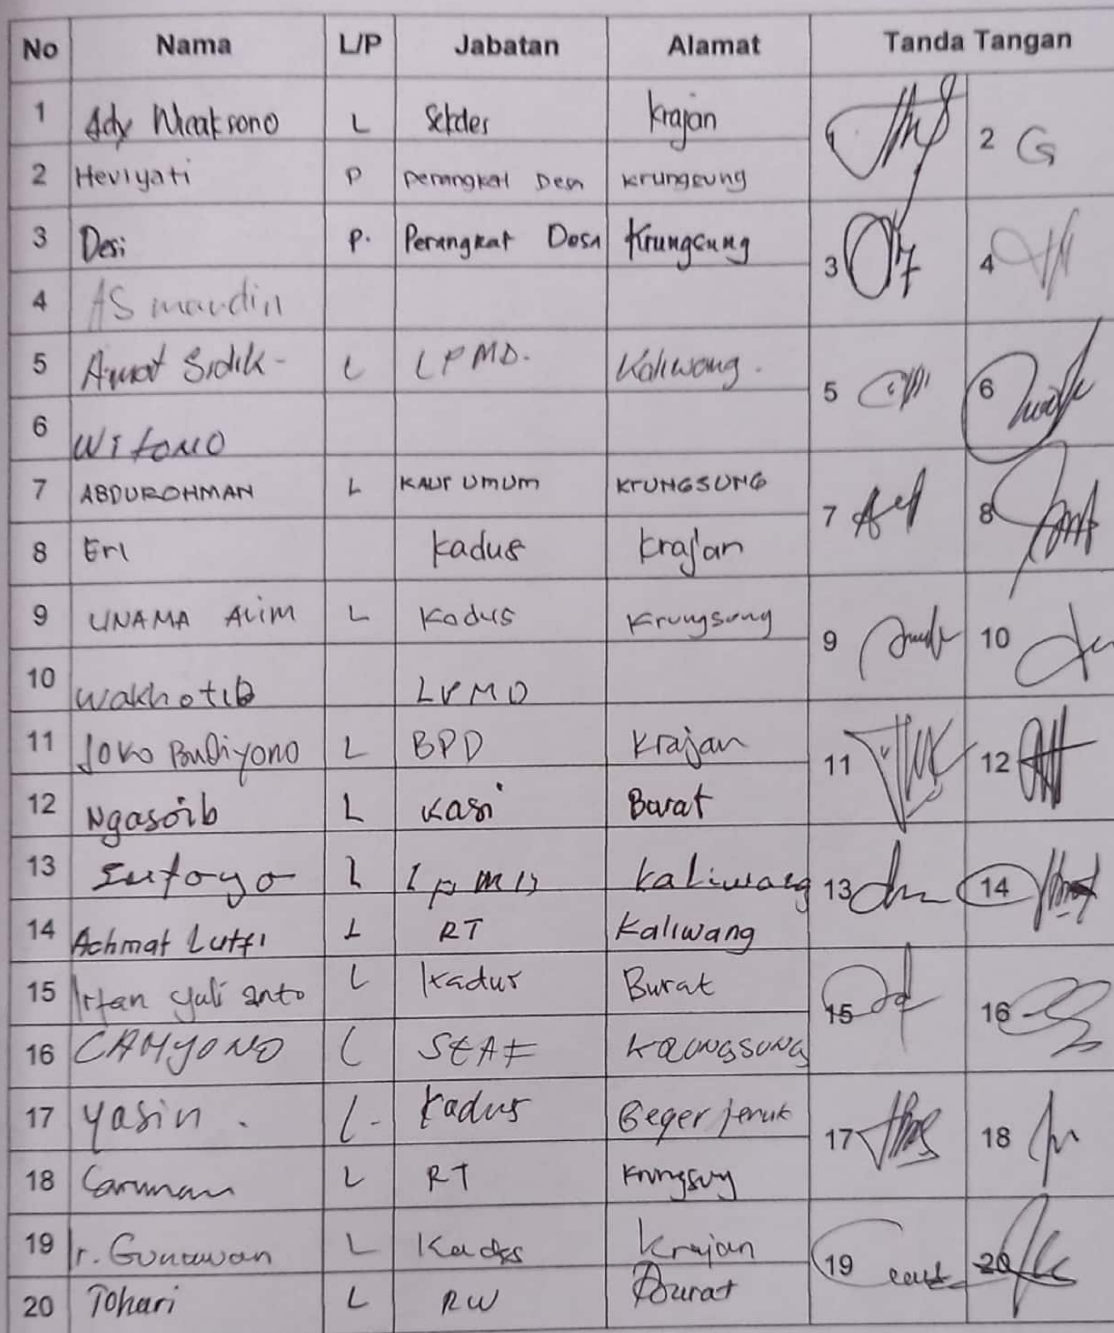 No Nama L/P Jabatan Alamat Tanda Tangan
1 Ady Wicaksono L Sekdes Krajan 1 2
2 Heviyati P Perangkat Desa Krungsung
3 Desi P. Perangkat Desa Krungsung 3 4
4 ASmaudin
5 Amat Sidik - L LPMD. Kaliwang. 5 6
6 WitoNO
7 ABDUROHMAN L KAUr UMUM KrUNGSUNG 7 8
8 Eri Kadus Krajan
9 UNAMA ALIM L Kadus Krungsung 9 10
10 Wakhotib LPMD
11 Joko Budiyono L BPD Krajan 11 12
12 Ngasoib L Kasi Burat
13 Sutoyo L LpMD Kaliwang 13 14
14 Achmat Lutfi L RT Kaliwang
15 Irfan yulianto L Kadus Burat 15 16
16 CAHYONO L StAF KRUNGSUNG
17 Yasin. L- Kadus Beger jeruk 17 18
18 L RT Krungsung
19 Ir. Gunawan L Kades Krajan 19 20
20 Tohari L RW Burat